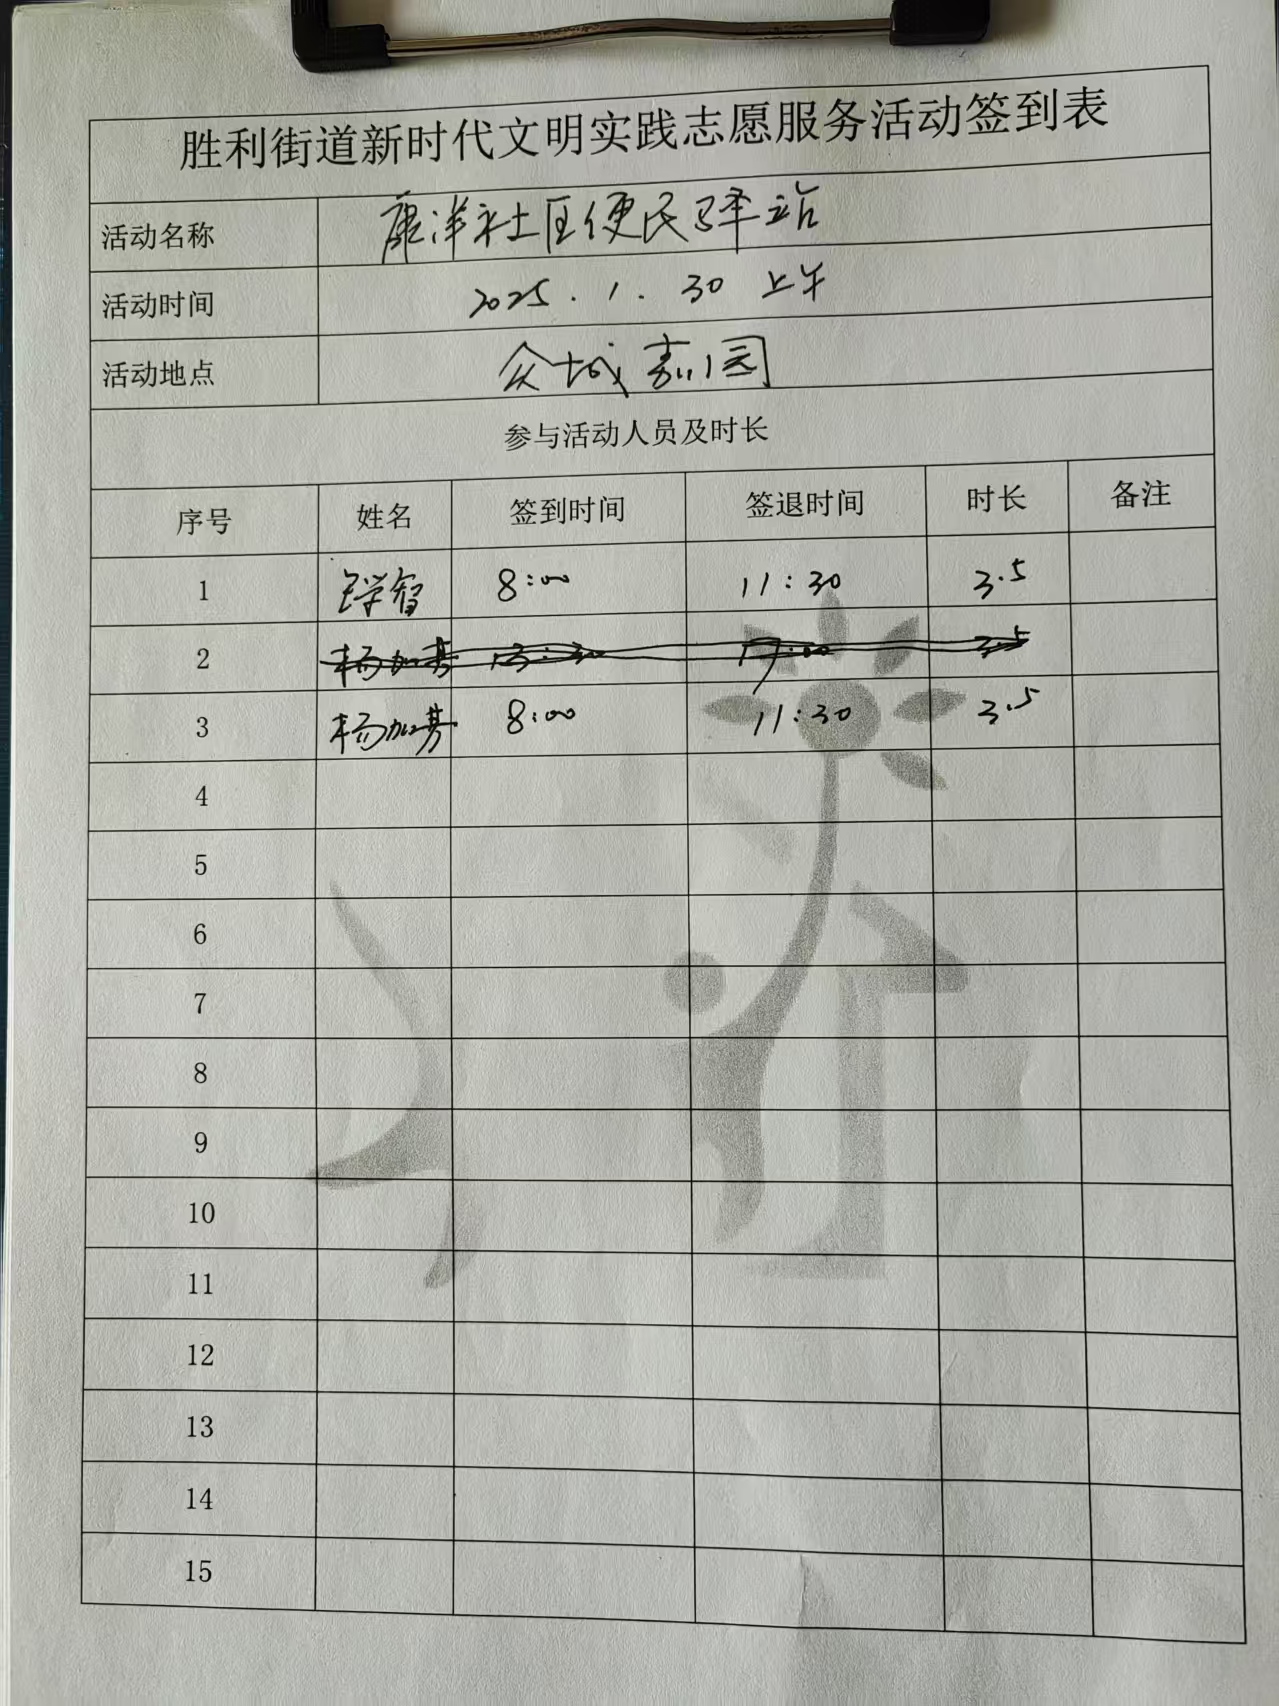 胜利街道新时代文明实践志愿服务活动签到表
活动名称 康洋社区便民驿站
活动时间 2025.1.30 上午
活动地点 众城嘉园
参与活动人员及时长
序号 姓名 签到时间 签退时间 时长 备注
1 8:00 11:30 3.5
2 杨加芳 13:30 17:00 3.5
3 杨加芳 8:00 11:30 3.5
4
5
6
7
8
9
10
11
12
13
14
15